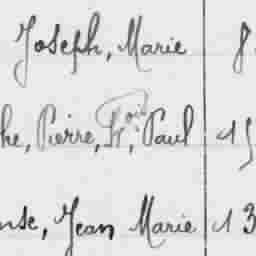 Joseph, Marie 8
he, Pierre, Paul 15
nse, Jean Marie 13